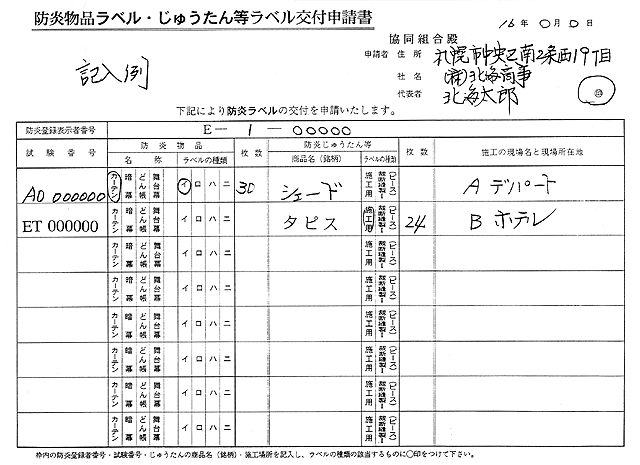 防炎物品ラベル・じゅうたん等ラベル交付申請書
16年〇月〇日
協同組合殿
記入例
申請者 住所 札幌市中央区南2条西19丁目
社名 (有)北海商事
代表者 北海太郎 印
下記により防炎ラベルの交付を申請いたします。
防炎登録表示者番号 E－1－00000
試験番号 防炎物品 枚数 防炎じゅうたん等 枚数 施工の現場名と現場所在地
名称 ラベルの種類 商品名(銘柄) ラベルの種類
A0 000000 カーテン 暗幕 どん帳 舞台幕 イ ロ ハ ニ 30 シェード 施工用 裁断縫製 (ピース) A デパート
ET 000000 カーテン 暗幕 どん帳 舞台幕 イ ロ ハ ニ タピス 施工用 裁断縫製 (ピース) 24 B ホテル
カーテン 暗幕 どん帳 舞台幕 イ ロ ハ ニ 施工用 裁断縫製 (ピース)
カーテン 暗幕 どん帳 舞台幕 イ ロ ハ ニ 施工用 裁断縫製 (ピース)
カーテン 暗幕 どん帳 舞台幕 イ ロ ハ ニ 施工用 裁断縫製 (ピース)
カーテン 暗幕 どん帳 舞台幕 イ ロ ハ ニ 施工用 裁断縫製 (ピース)
カーテン 暗幕 どん帳 舞台幕 イ ロ ハ ニ 施工用 裁断縫製 (ピース)
カーテン 暗幕 どん帳 舞台幕 イ ロ ハ ニ 施工用 裁断縫製 (ピース)
枠内の防炎登録者番号・試験番号・じゅうたんの商品名(銘柄)・施工場所を記入し、ラベルの種類の該当するものに〇印をつけて下さい。